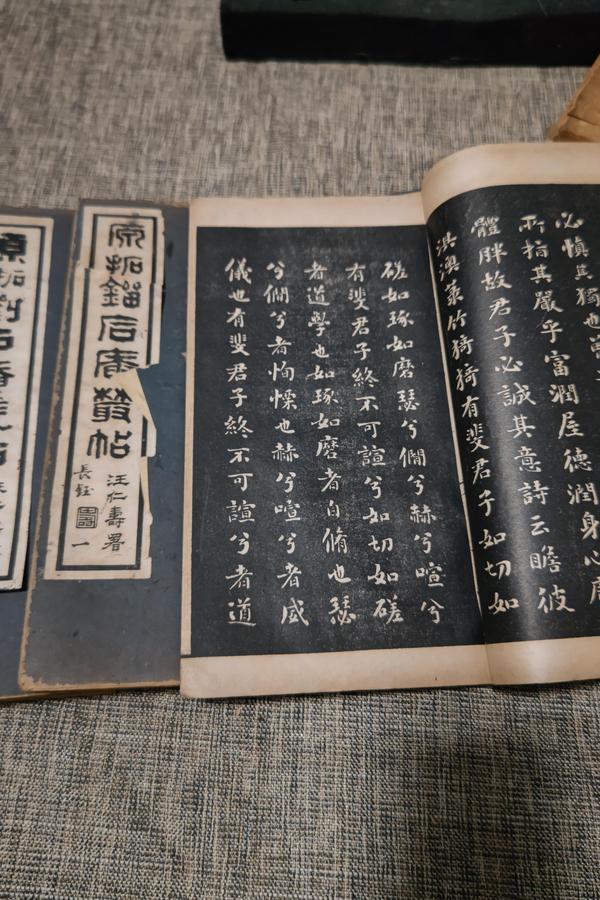 必慎其獨也曾
所指其嚴乎富潤屋德潤身心廣
體胖故君子必誠其意詩云瞻彼
淇澳菉竹猗猗有斐君子如切如
磋如琢如磨瑟兮僩兮赫兮喧兮
有斐君子終不可諠兮如切如磋
者道學也如琢如磨者自脩也瑟
兮僩兮者恂慄也赫兮喧兮者威
儀也有斐君子終不可諠兮者道
原拓鎦石庵叢帖
汪仁壽署
長鈺
一